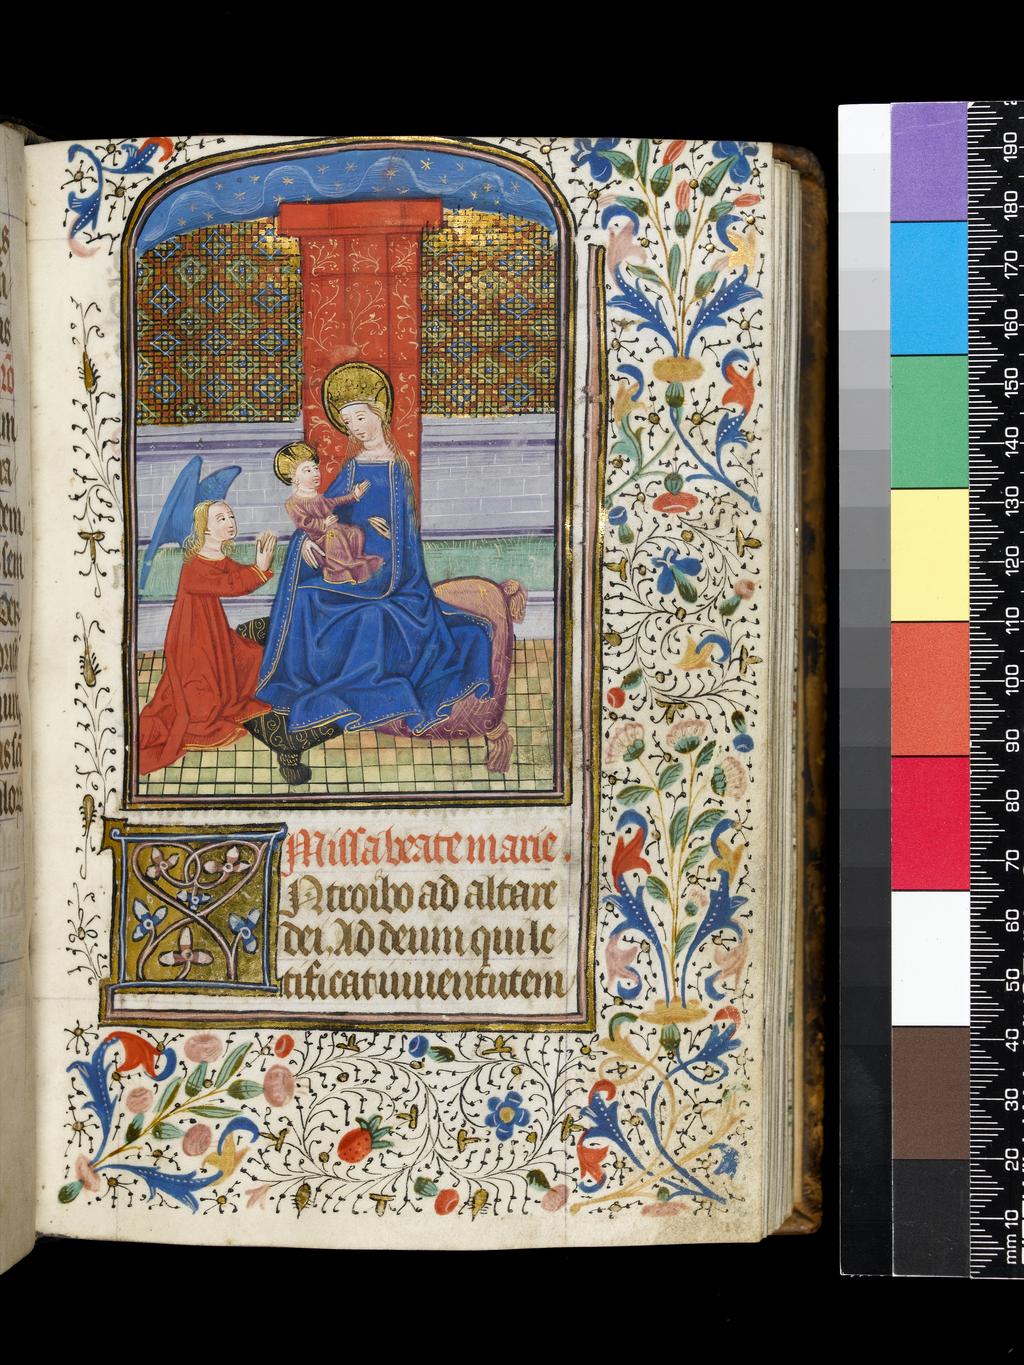 Missa beate marie.
Ntroibo ad altare
dei. Ad deum qui le
tificat iuuentutem
mm 10 20 30 40 50 60 70 80 90 100 110 120 130 140 150 160 170 180 190